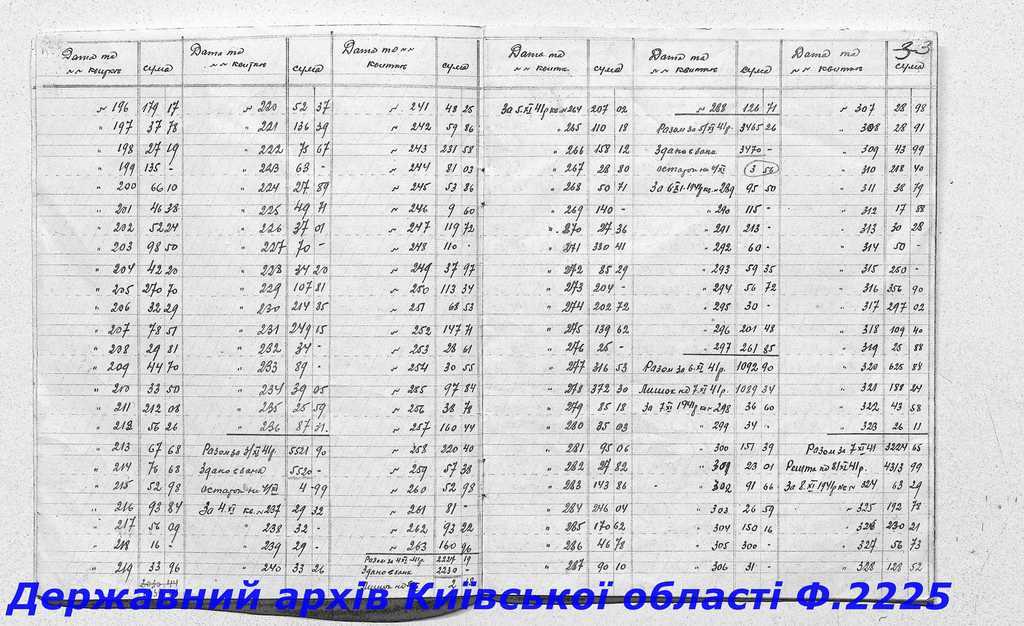 33
Дата та №№ квитків сума
№ 196 179 17
" 197 37 78
" 198 27 19
" 199 135 -
" 200 66 10
" 201 46 38
" 202 52 24
" 203 98 50
" 204 42 20
" 205 270 70
" 206 32 29
" 207 78 51
" 208 29 81
" 209 44 70
" 210 33 50
" 211 212 08
" 212 56 26
" 213 67 68
" 214 76 68
" 215 52 98
" 216 93 84
" 217 56 09
" 218 16 -
" 219 33 96
Дата та №№ квитків сума
№ 220 52 37
" 221 136 39
" 222 75 67
" 223 63 -
" 224 27 89
" 225 49 71
" 226 37 01
" 227 70 -
" 228 34 20
" 229 107 81
" 230 214 85
" 231 249 15
" 232 34 -
" 233 89 -
" 234 39 05
" 235 25 59
" 236 87 31
Разом за 3/XI 41р. 5521 90
Здано євана 5520 -
остаток на 4/XI 4 99
За 4.XI кв.№ 237 29 32
" 238 32 -
" 239 29 -
" 240 33 26
Дата та №№ квитків сума
№ 241 48 25
" 242 59 86
" 243 231 58
" 244 81 03
" 245 53 86
" 246 9 60
" 247 119 72
" 248 110 -
" 249 37 97
" 250 113 34
" 251 68 53
" 252 147 71
" 253 28 61
" 254 30 55
" 255 97 84
" 256 38 78
" 257 160 44
" 258 220 40
" 259 57 38
" 260 52 98
" 261 81 -
" 262 93 22
" 263 160 96
Разом за 4/XI-41р. 2227 19
Здано євана 2230 -
Дата та №№ квитків сума
За 5.XI 41р кв.№ 264 207 02
" 265 110 18
" 266 158 12
" 267 28 80
" 268 50 71
" 269 140 -
" 270 27 36
" 271 330 41
" 272 85 29
" 273 204 -
" 274 202 72
" 275 139 62
" 276 25 -
" 277 316 53
" 278 372 30
" 279 85 18
" 280 35 03
" 281 95 06
" 282 27 82
" 283 143 86
" 284 246 04
" 285 170 62
" 286 46 78
" 287 90 10
Дата та №№ квитків сума
№ 288 126 71
Разом за 5/XI 41р. 3465 26
Здано євана 3470 -
остаток на 6/XI 3 56
За 6.XI-1941р кв.№ 289 95 50
" 290 115 -
" 291 213 -
" 292 60 -
" 293 59 35
" 294 56 72
" 295 30 -
" 296 201 48
" 297 261 85
Разом за 6.XI 41р. 1092 90
Лишок на 7.XI 41р. 1089 34
За 7.XI 1941р кв.№ 298 36 60
" 299 34 -
" 300 151 39
" 301 23 01
" 302 91 66
" 303 26 59
" 304 150 16
" 305 300 -
" 306 31 -
Дата та №№ квитків сума
№ 307 28 98
" 308 28 91
" 309 43 99
" 310 218 40
" 311 38 79
" 312 17 88
" 313 30 28
" 314 50 -
" 315 250 -
" 316 356 90
" 317 297 02
" 318 109 40
" 319 25 88
" 320 625 84
" 321 188 24
" 322 43 58
" 323 26 11
Разом за 7.XI 41 3224 65
Решта на 8/XI 41р. 4313 99
За 8.XI 1941р кв.№ 324 63 29
" 325 192 78
" 326 230 21
" 327 56 73
" 328 128 52
Державний архів Київської області Ф.2225